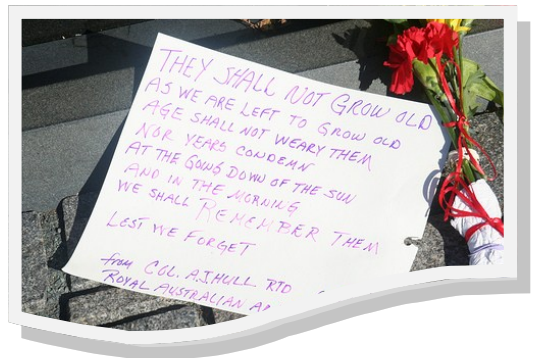 THEY SHALL NOT GROW OLD
AS WE ARE LEFT TO GROW OLD
AGE SHALL NOT WEARY THEM
NOR YEARS CONDEMN
AT THE GOING DOWN OF THE SUN
AND IN THE MORNING
WE SHALL REMEMBER THEM
LEST WE FORGET
from COL. A.J. HULL RTD
ROYAL AUSTRALIAN